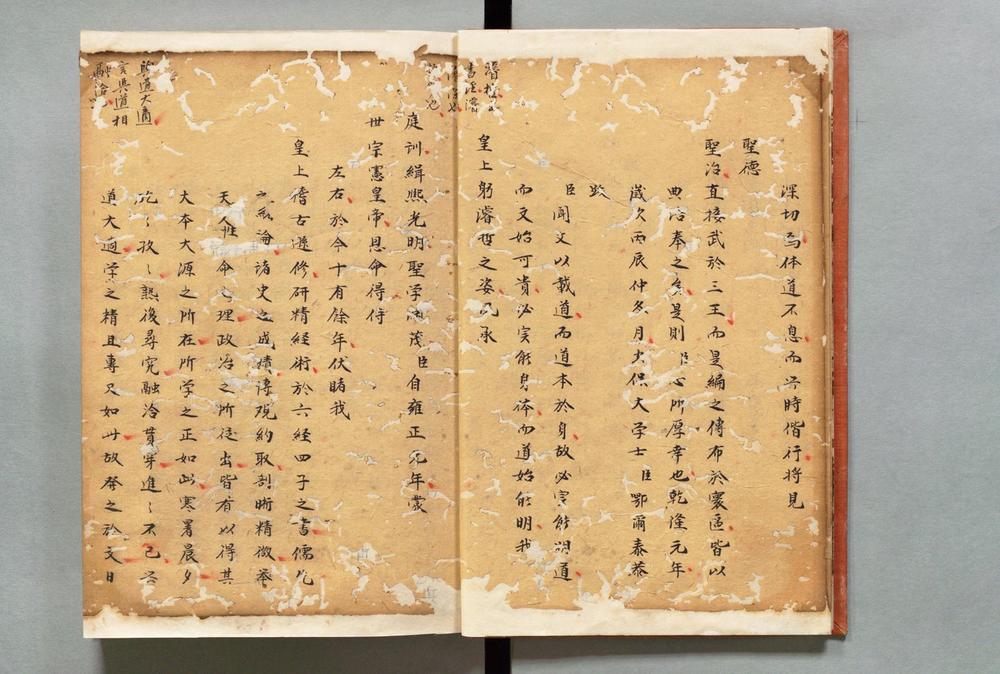 深切為体道不息而与時偕行将見
聖德
聖治直接武於三王而是編之傳布於寰區皆以
典語奉之矣是則臣心所厚幸也乾隆元年
歳次丙辰仲冬月太保大学士臣鄂爾泰恭
跋
臣聞文以載道而道本於身故必实能明道
而文始可貴必实能身体而道始能明我
皇上躬濬哲之姿承
庭训緝熙光明聖学茂臣自雍正元年蒙
世宗憲皇帝恩命得侍
左右於今十有餘年伏睹我
皇上稽古遜修研精経術於六経四子之書儒先
之論諸史之成績博观約取剖晰精微举
天人性命之理政治之所從出皆有以得其
大本大源之所在所学之正如此寒暑晨夕
孜々熟後尋究融洽貫穿進々不已与
道大適学之精且專又如此故發之於文日
與道大適
言與道相
融洽